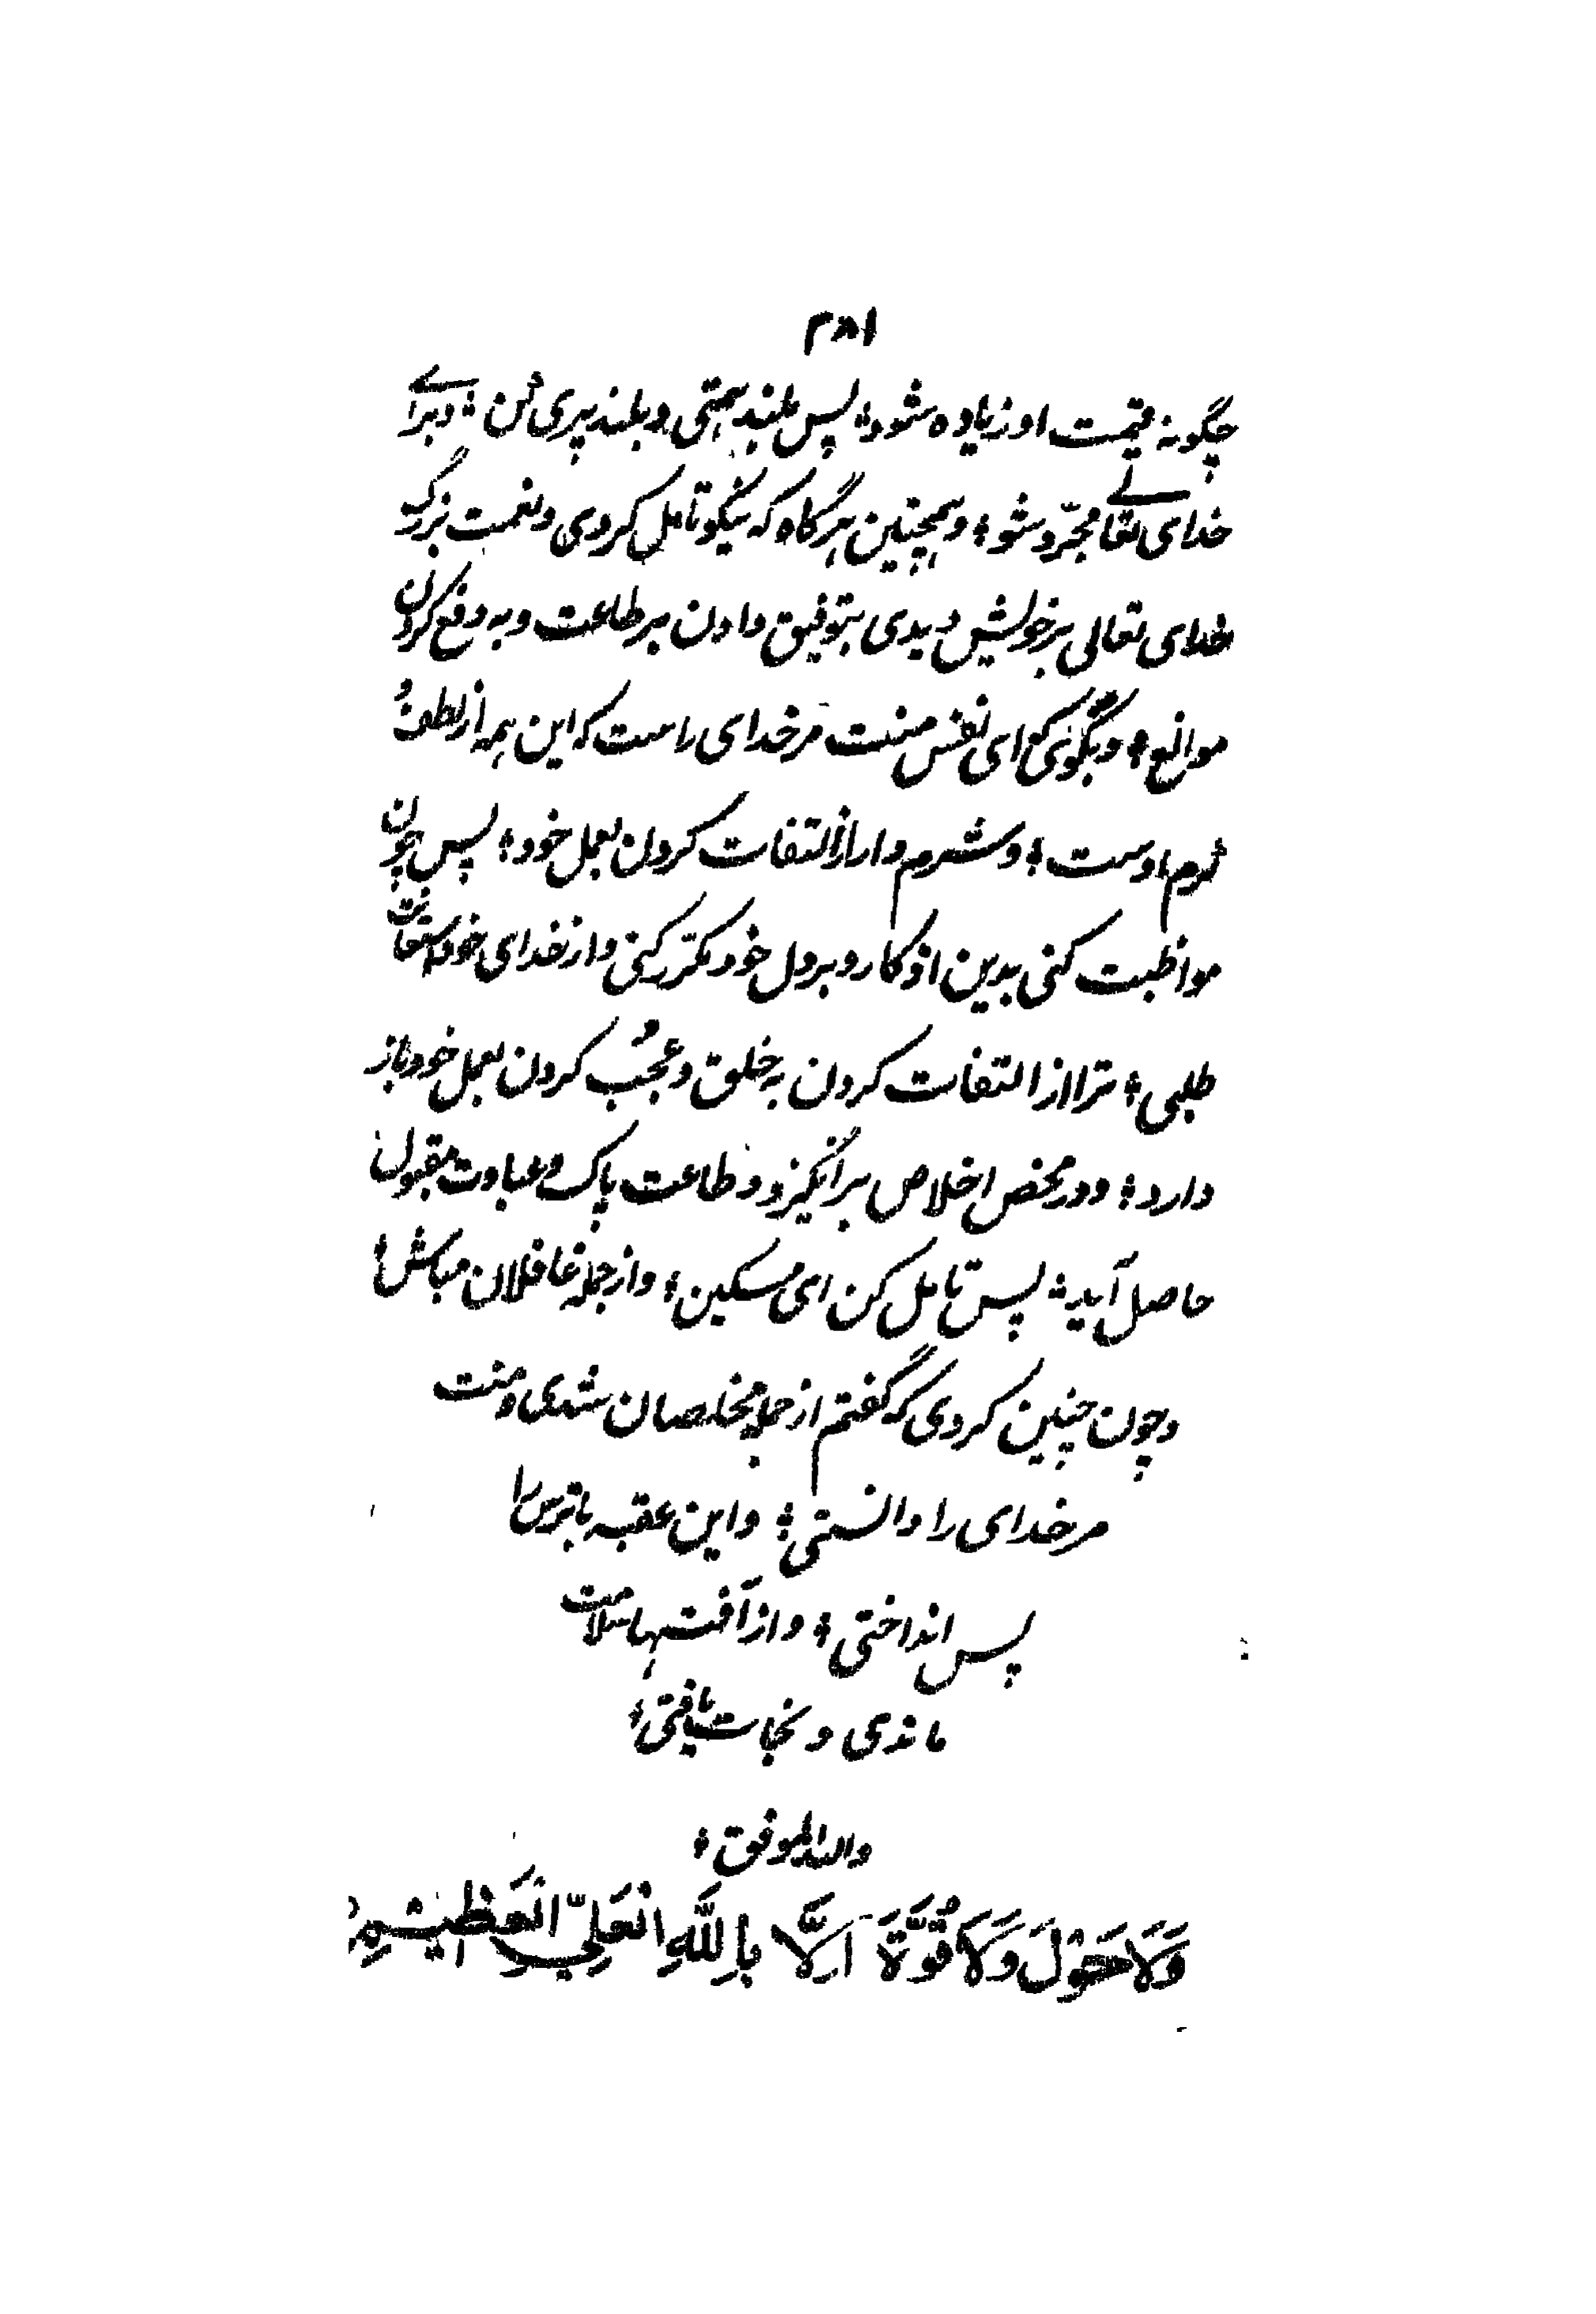 ۲۸۱
چگونه قیمت او زیاده شود؛ پس بلند همتی و بلند پری کن؛ و برای
خدای تعالے مجرّد شو؛ و همچنین هرگاه که نیکو تامل کردی و نعمت بزرگ
خدای تعالی بر خویش دیدی بتوفیق دادن بر طاعت و به دفع کردن
موانع؛ و بگوئی کہ ای نفس منت مر خدای راست که این همه از لطف و
کرم اوست؛ و شرم دار از التفات کردن بعمل خود؛ پس چون
مواظبت کنی بدین اذکار و بر دل خود مکرّر کنی و از خدای خود استعانت
طلبی؛ ترا از التفات کردن به خلق و عُجب کردن بعمل خود باز
دارد؛ و در محض اخلاص برانگیزد و طاعت پاک و عبادت مقبول
حاصل آید؛ پس تامل کن ای مسکین؛ و از جمله غافلان مباش؛
و چون چنین کردی که گفتم از جمله مخلصان شدی و منت
مر خدای را دانستی؛ و این عقبه باترس را
پس انداختی؛ و از آفتها سلامت
ماندی و نجات یافتی؛
والله الموفق؛
وَلَا حَوْلَ وَلَا قُوَّةَ اِلَّا بِاللّٰهِ الْعَلِيِّ الْعَظِيْمِ؛